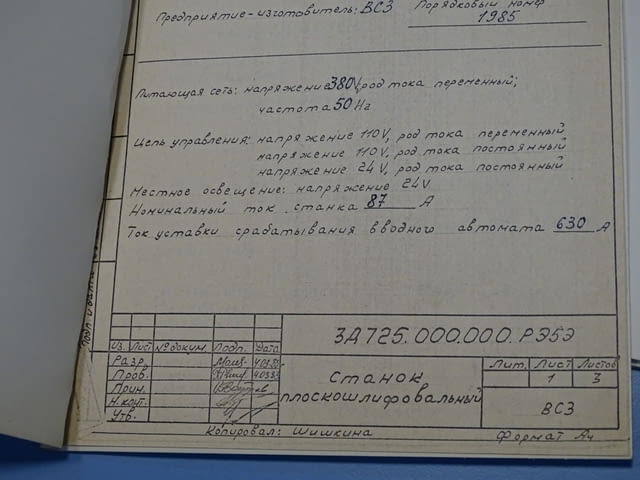 Предприятие-изготовитель: ВСЗ Порядковый номер
1985
Питающая сеть: напряжение 380V, род тока переменный;
частота 50 Hz
Цепь управления: напряжение 110V, род тока переменный
напряжение 110V, род тока постоянный
напряжение 24V, род тока постоянный
Местное освещение: напряжение 24V
Номинальный ток станка 87 А
Ток уставки срабатывания вводного автомата 630 А
3Д725.000.000.РЭ5Э
Из. Лист № докум. Подп. Дата
Разр.
Пров.
Прин.
Н.конт.
Утв.
Станок
плоскошлифовальный
Лит. Лист Листов
1 3
ВСЗ
Копировал: Шишкина Формат А4